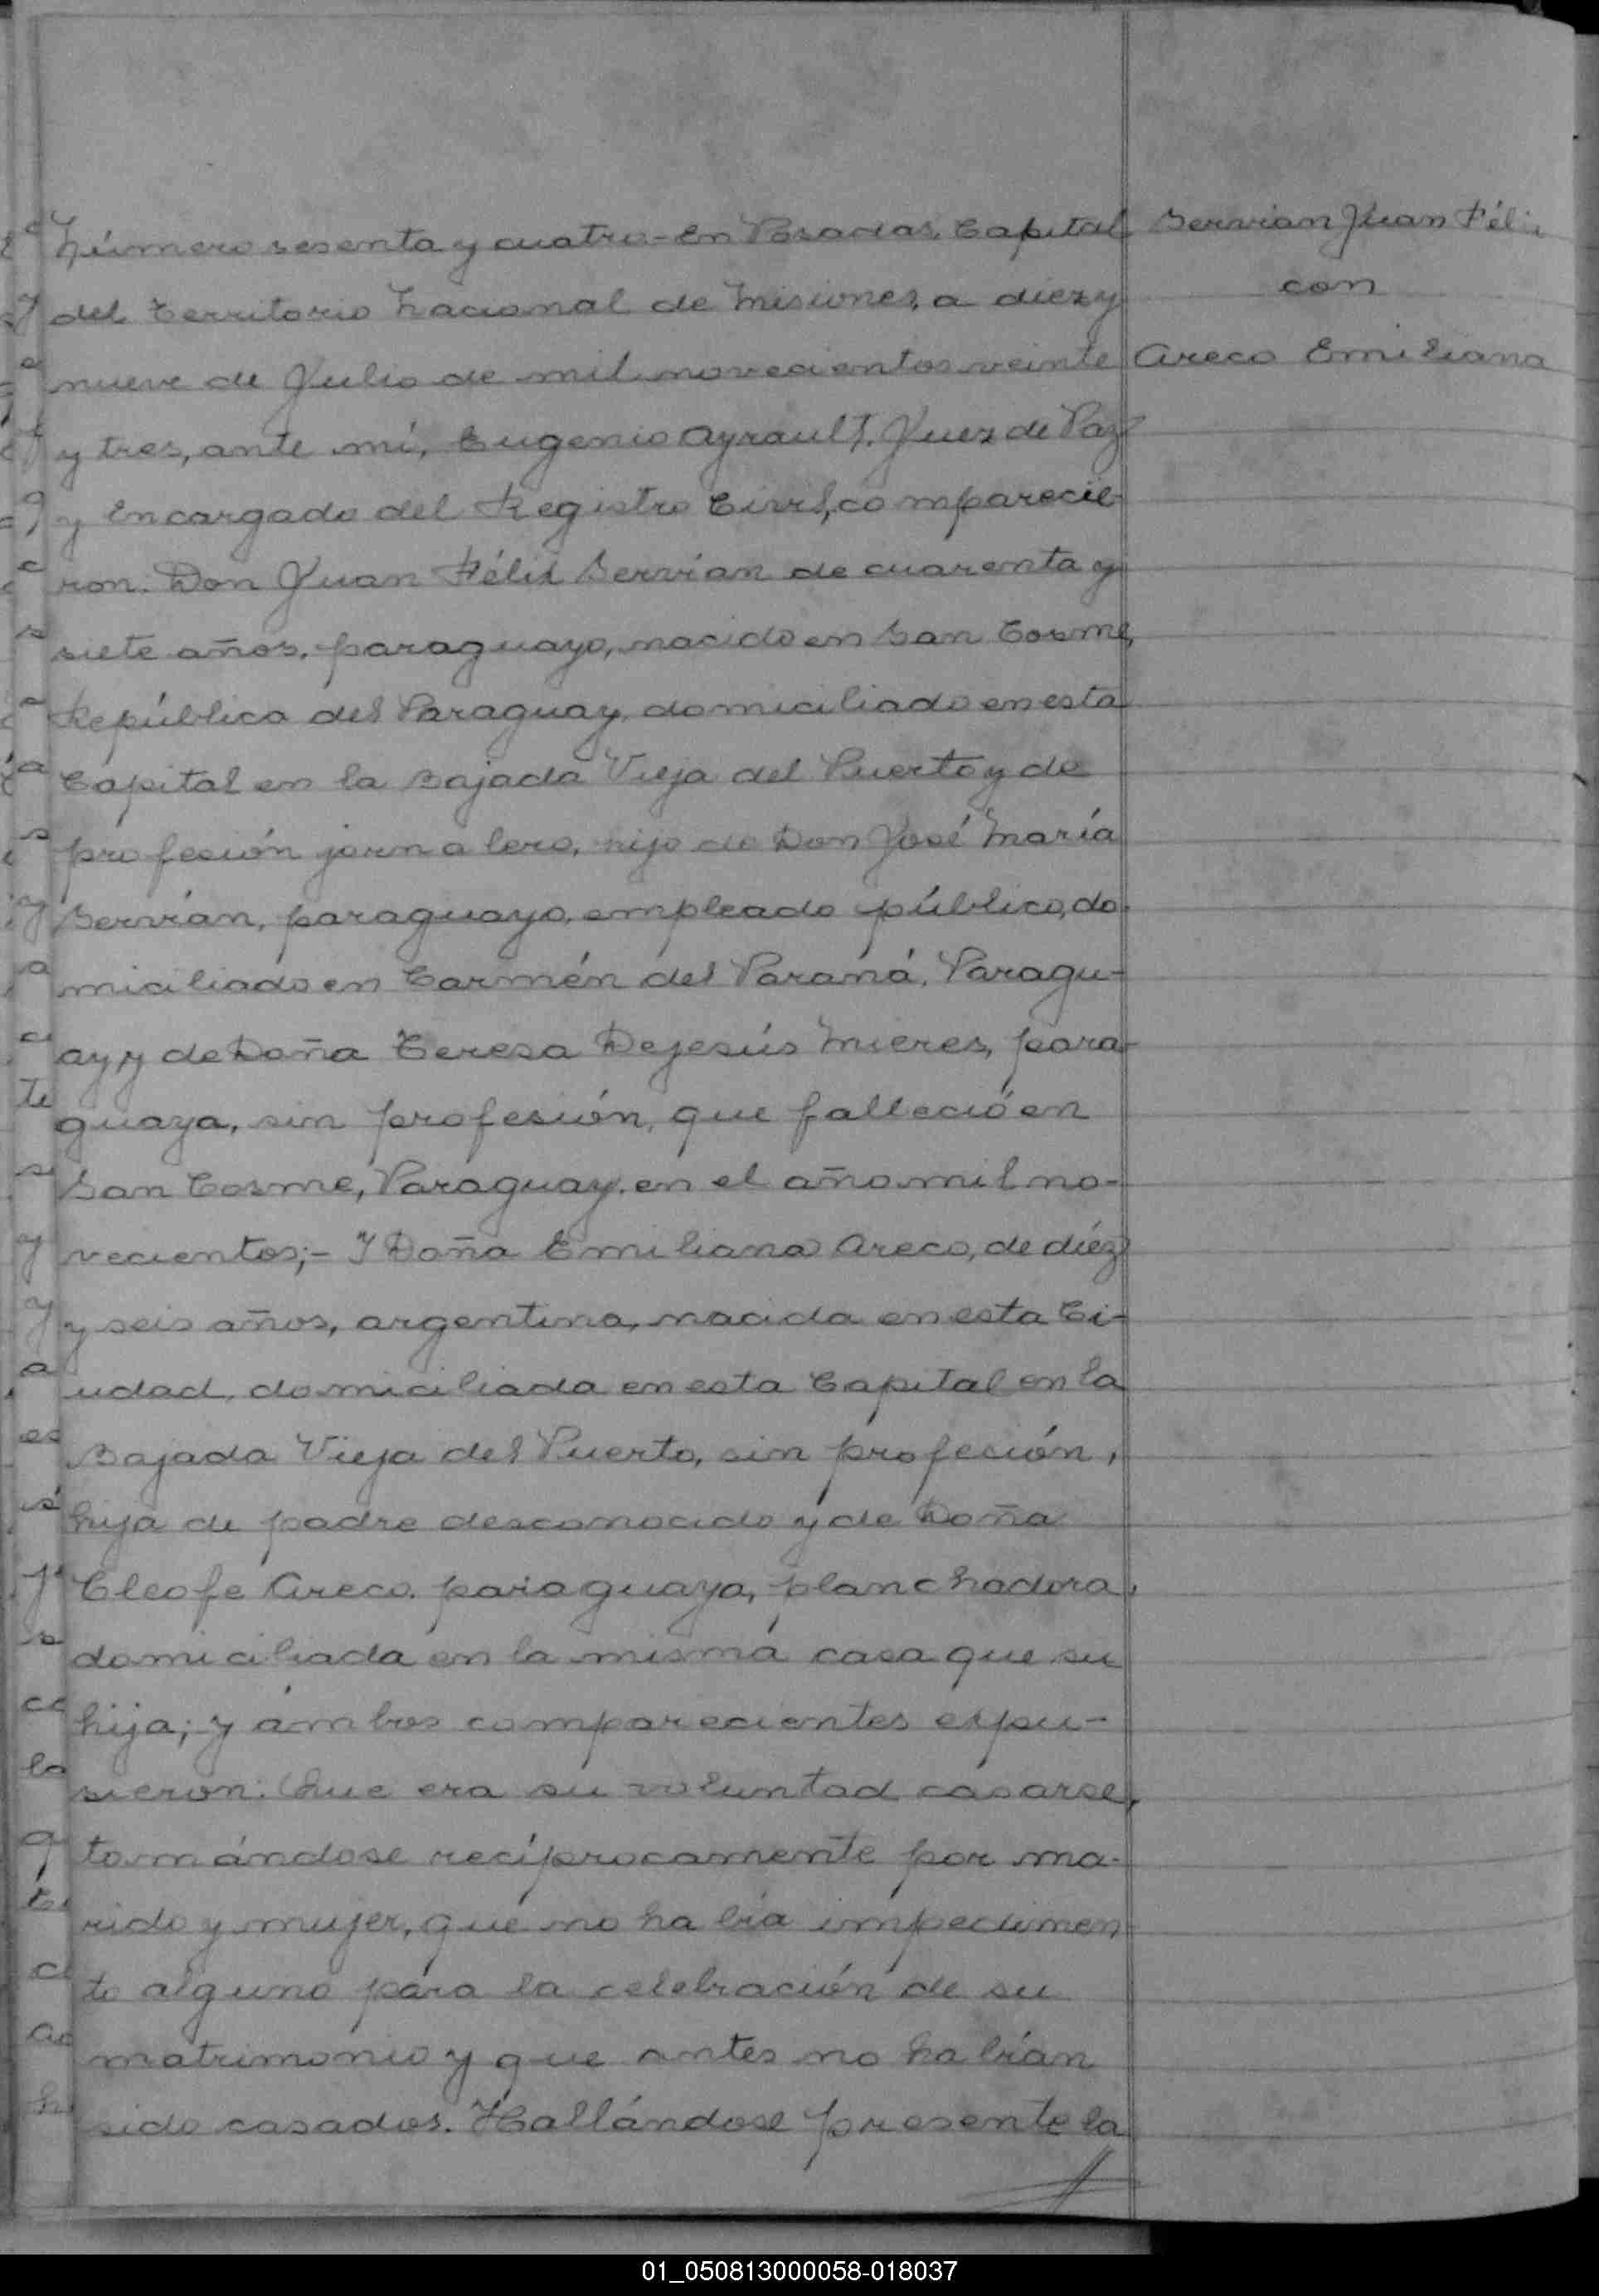 Número sesenta y cuatro.- En Posadas, Capital
del Territorio Nacional de Misiones, a diez y
nueve de Julio de mil novecientos veinte
y tres, ante mí, Eugenio Ayrault, Juez de Paz
y Encargado del Registro Civil, comparecie-
ron: Don Juan Félix Servian de cuarenta y
siete años, paraguayo, nacido en San Cosme,
República del Paraguay, domiciliado en esta
Capital en la Bajada Vieja del Puerto y de
profesión jornalero, hijo de Don José María
Servian, paraguayo, empleado público, do-
miciliado en Carmén del Paraná, Paragu-
ay, y de Doña Teresa Dejesús Mieres, para-
guaya, sin profesión, que falleció en
San Cosme, Paraguay, en el año mil no-
vecientos;- Y Doña Emiliana Areco, de diéz
y seis años, argentina, nacida en esta Ci-
udad, domiciliada en esta Capital en la
Bajada Vieja del Puerto, sin profesión,
hija de padre desconocido y de Doña
Cleofe Areco, paraguaya, planchadora,
domiciliada en la misma casa que su
hija; y ámbos comparecientes expu-
sieron: Que era su voluntad casarse,
tomándose recíprocamente por ma-
rido y mujer, que no había impedimen-
to alguno para la celebración de su
matrimonio y que antes no habían
sido casados. Hallándose presente la
Servian Juan Félix
con
Areco Emiliana
01_050813000058-018037